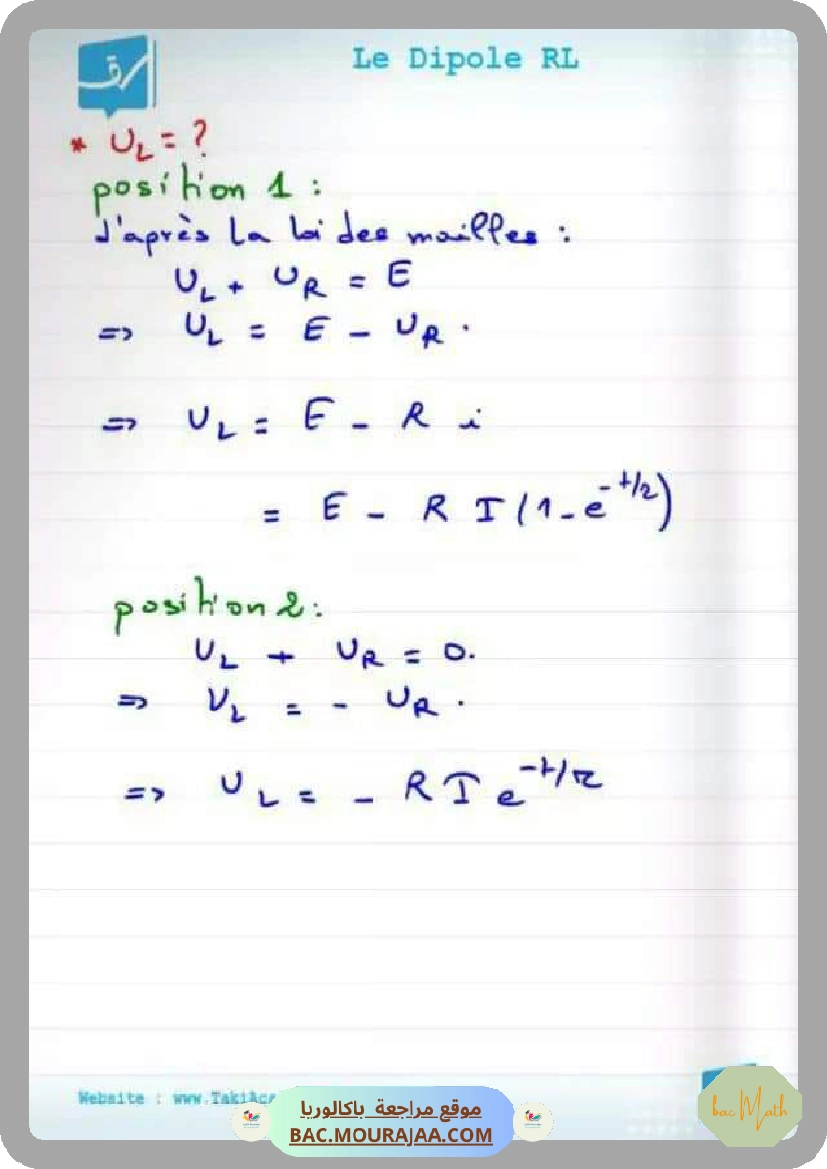 Le Dipole RL
* U_L = ?
position 1 :
d'après la loi des mailles :
U_L + U_R = E
=> U_L = E - U_R .
=> U_L = E - R i
= E - R I (1 - e^{-t/τ})
position 2 :
U_L + U_R = 0.
=> U_L = - U_R .
=> U_L = - R I e^{-t/τ}
Website : www.TakiAc
موقع مراجعة باكالوريا
BAC.MOURAJAA.COM
bac Math